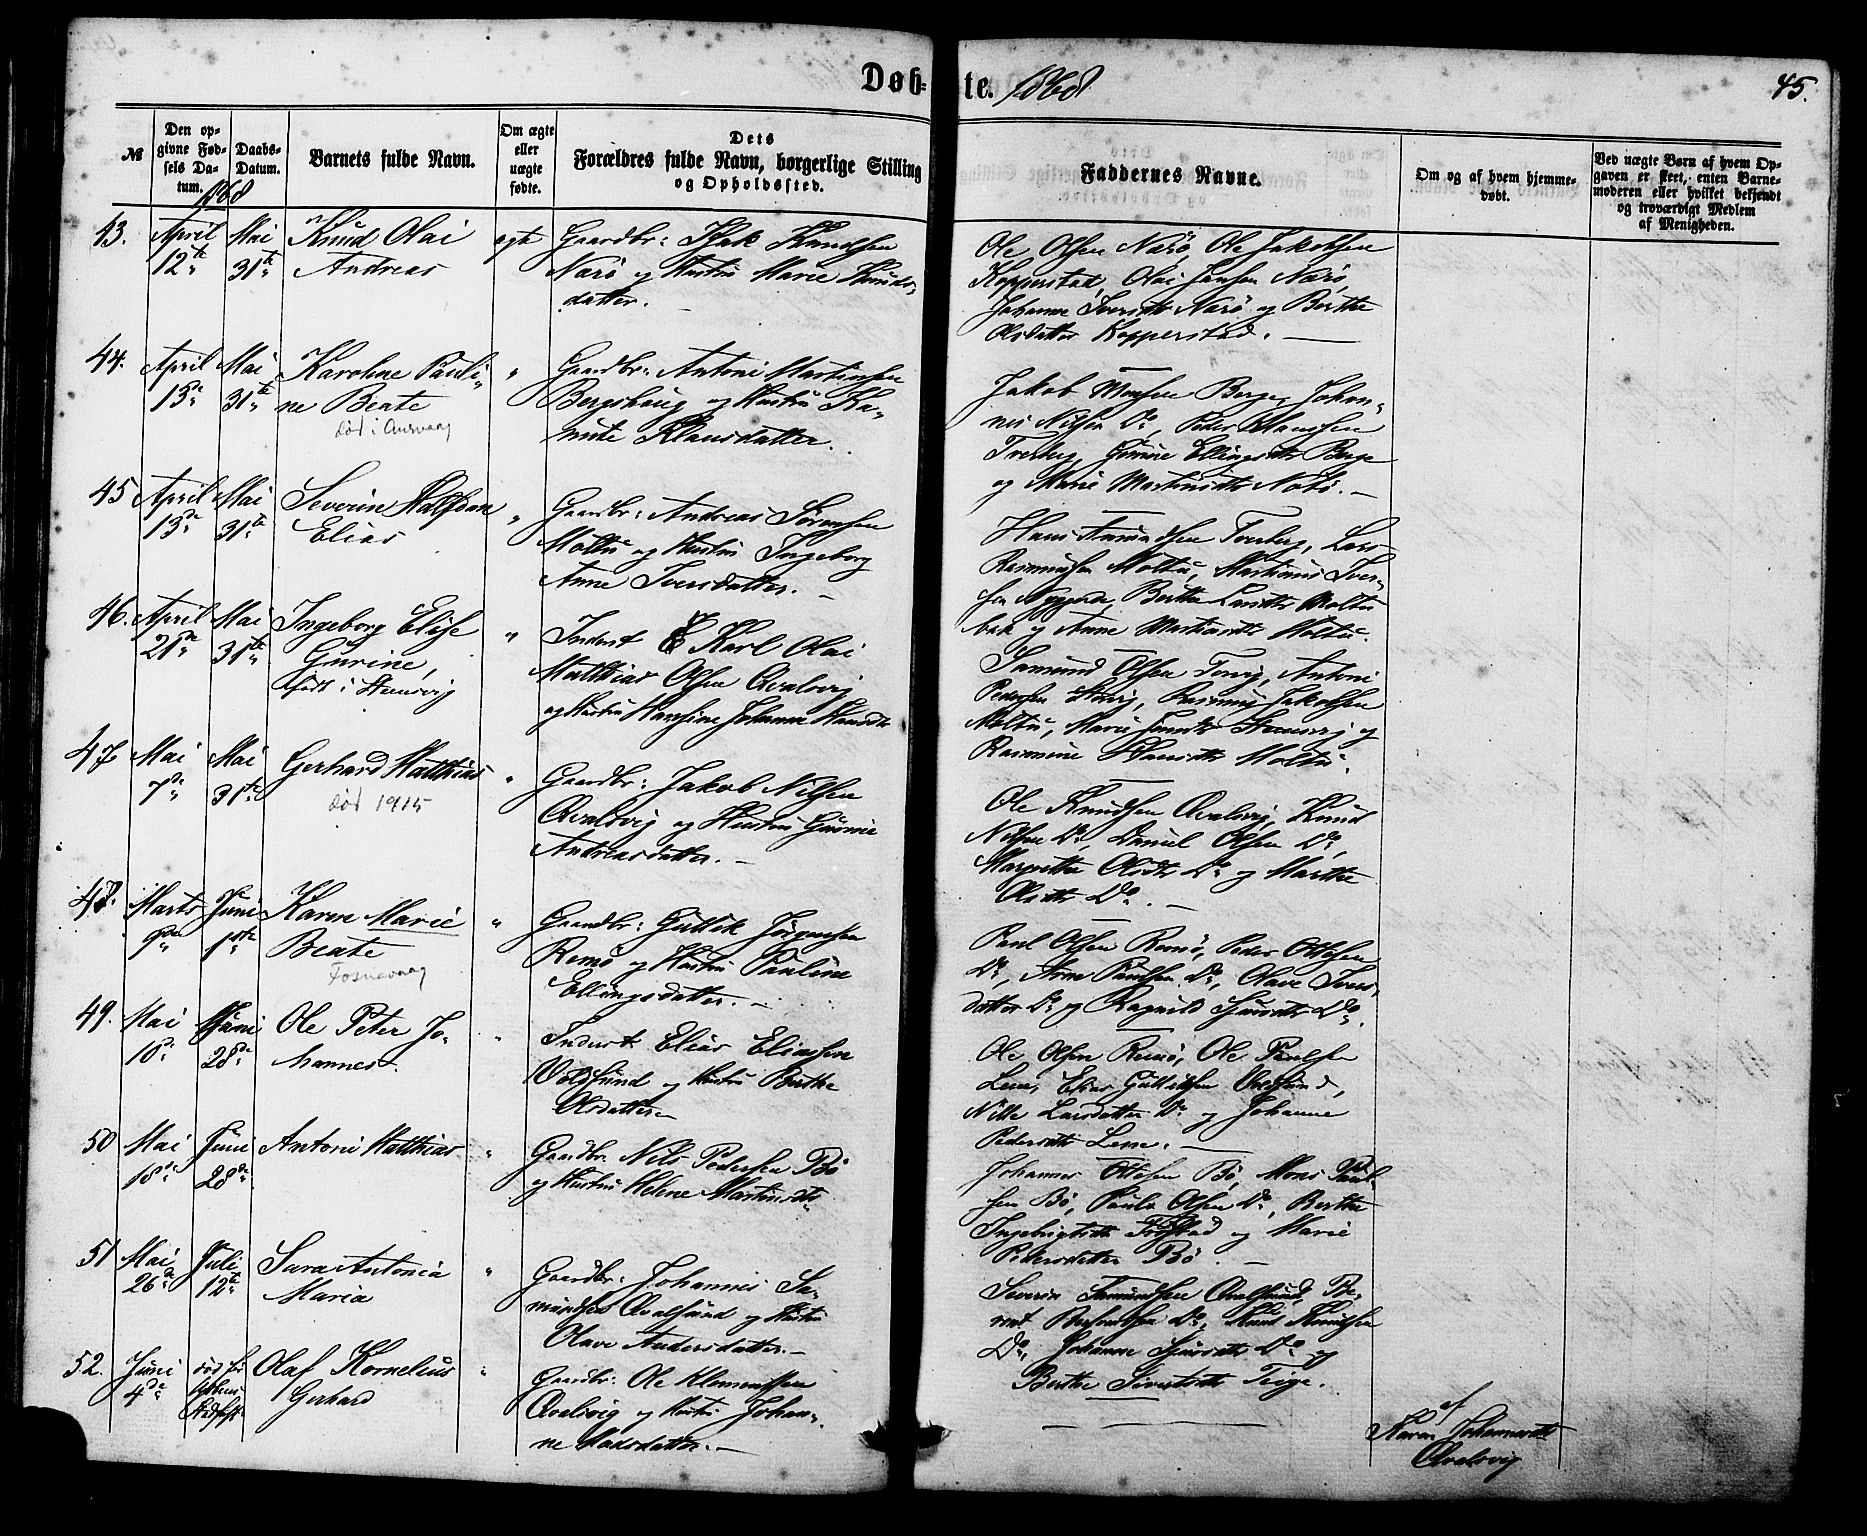 Døb-
te. 1868
45.
№
Den op-
givne Fød-
sels Da-
tum.
1868
Daabs-
Datum.
Barnets fulde Navn.
Om ægte
eller
uægte
fødte.
Dets
Forældres fulde Navn, borgerlige Stilling
og Opholdssted.
Faddernes Navne.
Om og af hvem hjemme-
døbt.
Ved uægte Børn af hvem Op-
gaven er skeet, enten Barne-
moderen eller hvilket bekjendt
og troværdigt Medlem
af Menigheden.
43. April 12te Mai 31te
Knud Olai
Andreas
ægte
Gaardbr: Isak Knudsen
Narø og Hustru Marie Knuds-
datter.
Ole Olsen Narø, Ole Jakobsen
Kopperstad, Olai Jensen Narø,
Johanne Iversdtr Narø og Berthe
Olsdatter Kopperstad.
44. April 13de Mai 31te
Karoline Pauli-
ne Beate
død i Aursvaag
"
Gaardbr: Antoni Martinsen
Bergshaug og Hustru Ka-
nute Klausdatter.
Jakob Monsen Berge, Johan-
nes Nilsen Do, Peder Klausen
Tverberg, Gurine Ellingsdtr Berge
og Marie Martinsdtr
45 April 13de Mai 31te
Severin Halfdan
Elias
"
Gaardbr: Andreas Sørensen
Moltu og Hustru Ingeborg
Anne Iversdatter.
Hans Amundsen Tverberg, Lars
Rasmussen Moltu, Martinus Iver-
sen Myrene, Berthe Larsdtr Moltu
bak og Anne Martinsdtr Moltu.
46. April 21de Mai 31te
Ingeborg Elise
Gurine,
født i Stensvig
"
Inderst Karl Olai
Matthias Olsen Qvalsvig
og Hustru Hansine Johanne Hansdtr
Samund Olsen Torvig, Antoni
Pedersen Rasmus Jakobsen
Moltu, Marie Stensvig og
Rasmine Hansdtr Moltu.
47 Mai 7de Mai 31te
Gerhard Matthias
død 1915
"
Gaardbr: Jakob Nilsen
Qvalsvig og Hustru Gurine
Andreasdatter.
Ole Knudsen Qvalsvig, Knud
Nilsen Do, Daniel Olsen Do
Margrethe Olsdtr Do og Marthe
Olsdtr Do.
48. Marts 9de Juni 1ste
Karen Marie
Beate
Fosnavaag
"
Gaardbr: Guttik Jørgensen
Remø og Hustru Pauline
Ellingsdatter.
Paul Olsen Remø, Peder Ottesen
Do, Arne Paulsen Do, Olave Ivers-
datter Do og Ragnild Sjursdtr Do.
49. Mai 10de Juni 28de
Ole Peter Jo-
hannes
"
Inderst Elias Eliassen
Voldsund og Hustru Berthe
Olsdatter
Ole Olsen Remø, Ole Paulsen
Lene, Elias Guttiksen Voldsund,
Nille Larsdatter Do og Johanne
Pedersdtr Lene.
50 Mai 18de Juni 28de
Antoni Matthias
"
Gaardbr. Nils Pedersen Bø
og Hustru Helene Martinsdtr
Johannes Ottesen Bø, Mons Paul-
sen Bø, Paul Olsen Do, Berthe
Ingebrigtsdtr og Marie
Pedersdatter Bø.
51 Mai 26de Juli 12te
Sara Antonia
Maria
"
Gaardbr: Johannes Sa-
mundsen Qvalsund og Hustru
Olave Andersdatter.
Severin Samundsen Qvalsund, Be-
rent Berentsen Do, Knud Knudsen
Do, Johanne Sjursdtr Do og
Berthe Sivertsdtr Teige.
52. Juni 4de død før
Kirkens
Stadfæst.
Olaf Kornelius
Gerhard
"
Gaardbr: Ole Klemetsen
Qvalsvig og Hustru Johan-
ne Madsdatter.
af
Karen Johannesdtr
Qvalsvig